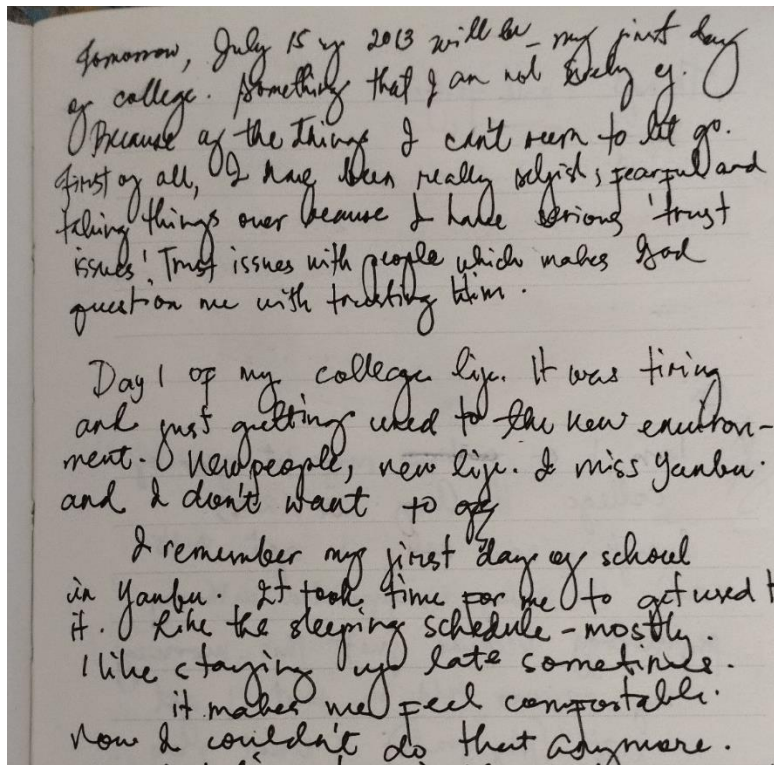 Tomorrow, July 15 of 2013 will be my first day
of college. Something that I am not of.
Because of the things I can't seem to let go.
First of all, I have been really selfish, fearful and
taking things over because I have serious 'trust
issues'. Trust issues with people which makes God
question me with trusting Him.
Day 1 of my college life. It was tiring
and just getting used to the new environ-
ment. New people, new life. I miss Yanbu.
and I don't want to
I remember my first day of school
in Yanbu. It took time for me to get used t
it. Like the sleeping schedule - mostly.
I like staying up late sometimes.
it makes me feel comfortable.
Now I couldn't do that anymore.